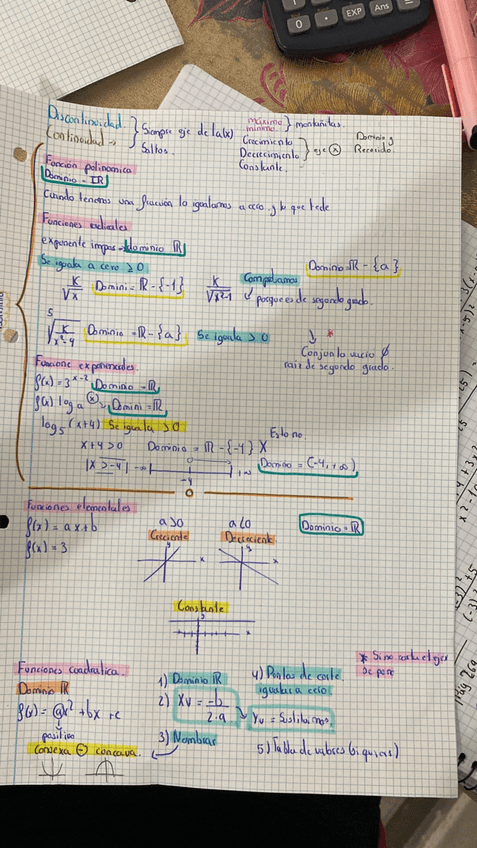 Discontinuidad.
Continuidad →
} Siempre eje de la(x)
Saltos.
máximo
mínimo } montañitas.
Crecimiento
Decrecimiento } eje (x)
Constante.
Dominio y
Recorrido.
Función polinomica
Dominio = IR
Cuando tenemos una fracción lo igualamos a cero y lo que te de
Funciones radicales
exponente impar = dominio IR
Se iguala a cero ≥ 0
K/√x Domini = IR - {-1}
K/√x²-1 Comprobamos
porque es de segundo grado.
Dominio = IR - {a}
5√K/x²-4 Dominio = IR - {a} Se iguala > 0
↓ *
Conjunto vacio ∅
raiz de segundo grado.
Funcione exponenciales.
f(x) = 3^x-2 Dominio = IR
f(x) log a (x) = Domini = IR
log5 (x+4) Se iguala > 0
x+4 > 0 Dominio = IR - {-4} X
Esto no
|x > -4| -∞ +∞ Domino = (-4, +∞)
-4
Funciones elementales
f(x) = ax+b
f(x) = 3
a>0
Creciente
a<0
Decreciente.
Dominio = IR
y
x
y
x
Constante
Funciones cuadratica.
Dominio IR
f(x) = ax² + bx + c
positiva
convexa ⊖ concava.
1) Dominio IR
2) Xv = -b/2·a → Yv = Sustituimos.
3) Nombrar
4) Puntos de corte.
igualar a cero
5) Tabla de valores (si quieres)
* Si no corta el eje